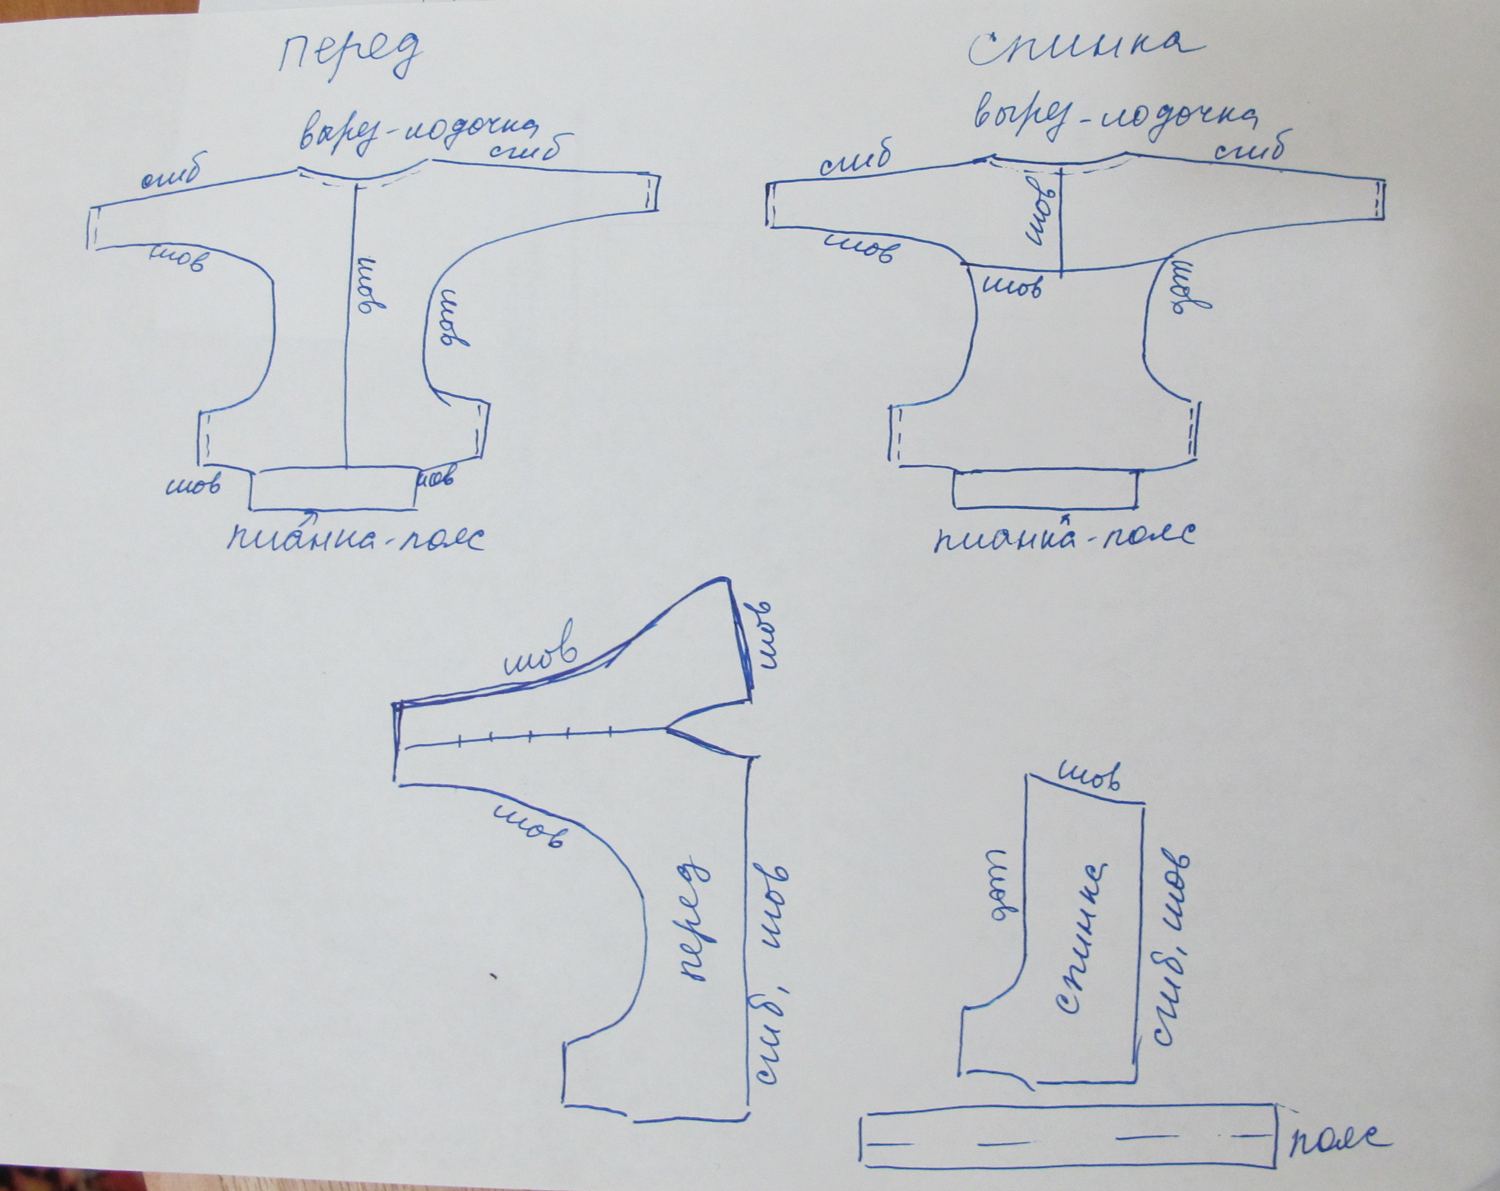 перед
спинка
вырез-лодочка
вырез-лодочка
сгиб
сгиб
сгиб
сгиб
шов
шов
шов
шов
шов
шов
шов
шов
шов
планка-пояс
планка-пояс
шов
шов
шов
шов
шов
перед
спинка
сгиб, шов
сгиб, шов
пояс